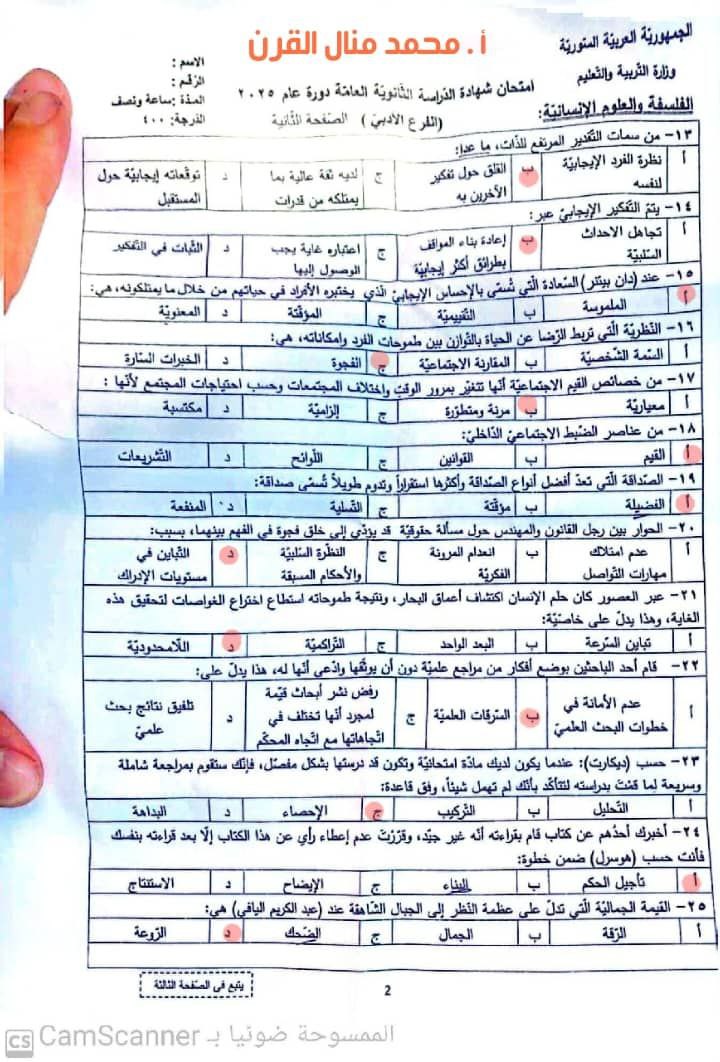 أ. محمد منال القرن
الجمهوريّة العربية السّوريّة
وزارة التّربية والتّعليم
الفلسفة والعلوم الإنسانيّة:
امتحان شهادة الدراسة الثّانويّة العامّة دورة عام ٢٠٢٥
(الفرع الأدبيّ) الصّفحة الثّانية
الاسم :
الرّقم :
المدّة :ساعة ونصف
الدرجة: ٤٠٠
١٣- من سمات التّقدير المرتفع للذّات، ما عدا:
أ نظرة الفرد الإيجابيّة لنفسه ب القلق حول تفكير الآخرين به ج لديه ثقة عالية بما يمتلكه من قدرات د توقّعاته إيجابيّة حول المستقبل
١٤- يتمّ التّفكير الإيجابيّ عبر:
أ تجاهل الاحداث السّلبيّة ب إعادة بناء المواقف بطرائق أكثر إيجابيّة ج اعتباره غاية يجب الوصول إليها د الثّبات في التّفكير
١٥- عند (دان بينتر) السّعادة الّتي تُسمّى بالإحساس الإيجابيّ الّذي يختبره الأفراد في حياتهم من خلال ما يمتلكونه، هي:
أ الملموسة ب التّقييميّة ج المؤقّتة د المعنويّة
١٦- النّظريّة الّتي تربط الرّضا عن الحياة بالتّوازن بين طموحات الفرد وإمكاناته، هي:
أ السّمة الشّخصيّة ب المقارنة الاجتماعيّة ج الفجوة د الخبرات السّارة
١٧- من خصائص القيم الاجتماعيّة أنّها تتغيّر بمرور الوقت واختلاف المجتمعات وحسب احتياجات المجتمع لأنّها :
أ معياريّة ب مرنة ومتطوّرة ج إلزاميّة د مكتسبة
١٨- من عناصر الضّبط الاجتماعيّ الدّاخليّ:
أ القيم ب القوانين ج اللّوائح د التّشريعات
١٩- الصّداقة الّتي تعدّ أفضل أنواع الصّداقة وأكثرها استقراراً وتدوم طويلاً تُسمّى صداقة:
أ الفضيلة ب مؤقّتة ج التّسلية د المنفعة
٢٠- الحوار بين رجل القانون والمهندس حول مسألة حقوقيّة قد يؤدّي إلى خلق فجوة في الفهم بينهما، بسبب:
أ عدم امتلاك مهارات التّواصل ب انعدام المرونة الفكريّة ج النّظرة السّلبيّة والأحكام المسبقة د التّباين في مستويات الإدراك
٢١- عبر العصور كان حلم الإنسان اكتشاف أعماق البحار، ونتيجة طموحاته استطاع اختراع الغواصات لتحقيق هذه
الغاية، وهذا يدلّ على خاصّيّة:
أ تباين السّرعة ب البعد الواحد ج التّراكميّة د اللّامحدوديّة
٢٢- قام أحد الباحثين بوضع أفكار من مراجع علميّة دون أن يوثّقها وادّعى أنّها له، هذا يدلّ على:
أ عدم الأمانة في خطوات البحث العلميّ ب السّرقات العلميّة ج رفض نشر أبحاث قيّمة لمجرد أنّها تختلف في اتّجاهاتها مع اتّجاه المحكّم د تلفيق نتائج بحث علميّ
٢٣- حسب (ديكارت): عندما يكون لديك مادّة امتحانيّة وتكون قد درستها بشكل مفصّل، فإنّك ستقوم بمراجعة شاملة
وسريعة لما قمْتَ بدراسته للتأكّد بأنّك لم تهمل شيئاً، وفق قاعدة:
أ التّحليل ب التّركيب ج الإحصاء د البداهة
٢٤- أخبرك أحدُهم عن كتاب قام بقراءته أنّه غير جيّد، وقرّرتَ عدم إعطاء رأي عن هذا الكتاب إلّا بعد قراءته بنفسك
فأنت حسب (هوسرل) ضمن خطوة:
أ تأجيل الحكم ب البناء ج الإيضاح د الاستنتاج
٢٥- القيمة الجماليّة الّتي تدلّ على عظمة النّظر إلى الجبال الشّاهقة عند (عبد الكريم اليافي) هي:
أ الرّقة ب الجمال ج الضّحك د الرّوعة
يتبع في الصّفحة الثّالثة
2
الممسوحة ضوئيا بـ CamScanner
CS